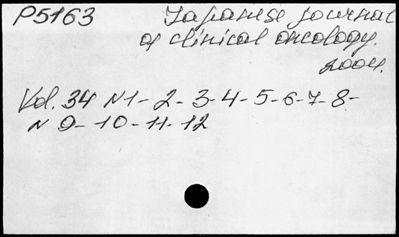 P5163 Japanese journal
of clinical oncology.
2004.
Vol. 34 N1-2-3-4-5-6-7-8-
N 9-10-11-12